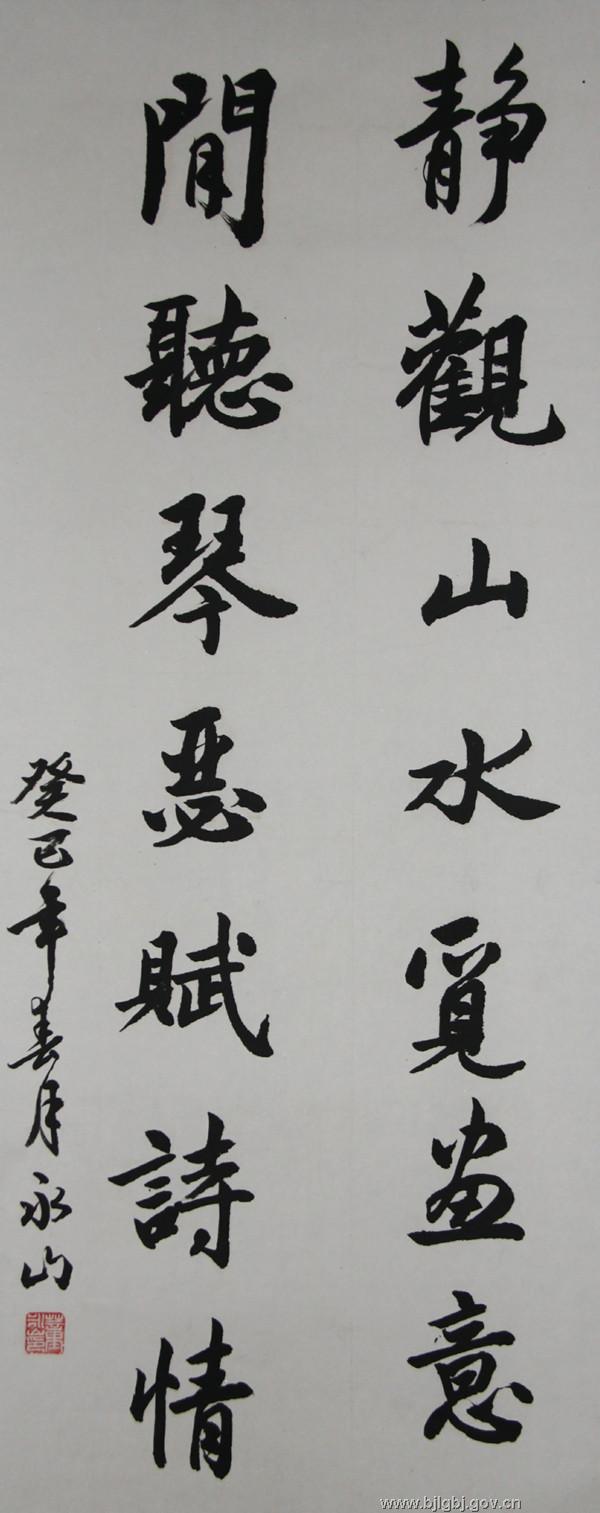 静觀山水覓画意
閒聽琴瑟賦詩情
癸巳年春月永山
www.bjlgbj.gov.cn